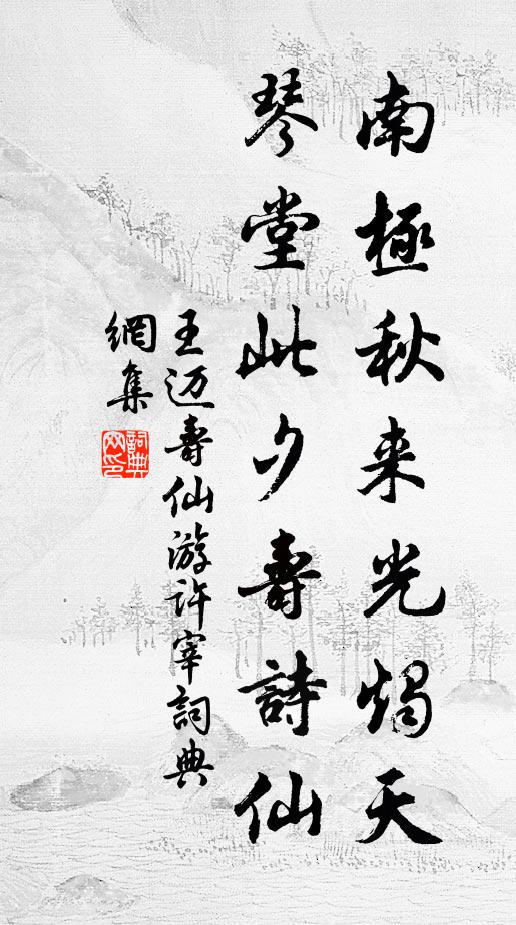 南極秋来光燭天
琴堂此夕壽詩仙
王迈壽仙游许宰詞典
網集
詞典
网印